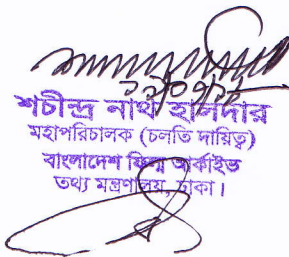 শচীন্দ্র নাথ হালদার
মহাপরিচালক (চলতি দায়িত্ব)
বাংলাদেশ ফিল্ম আর্কাইভ
তথ্য মন্ত্রণালয়, ঢাকা।